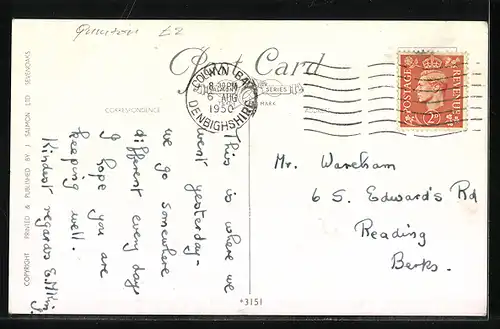 £2
Post Card
COLWYN BAY
DENBIGHSHIRE
6 AUG
1950
SERIES
MARK
CORRESPONDENCE
POSTAGE
REVENUE
2D
This is where we
went yesterday -
we go somewhere
different every day
I hope you are
keeping well.
Kindest regards
Mr. Wareham
6 S. Edward's Rd
Reading
Berks.
COPYRIGHT PRINTED & PUBLISHED BY J SALMON LTD SEVENOAKS
3151